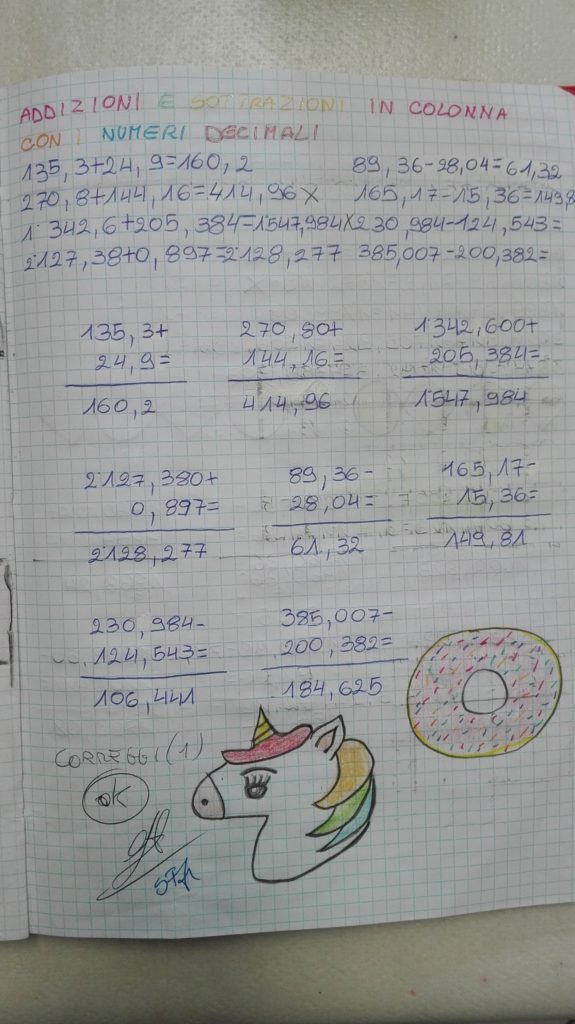 ADDIZIONI E SOTTRAZIONI IN COLONNA
CON I NUMERI DECIMALI
135,3+24,9=160,2 89,36-28,04=61,32
270,8+144,16=414,96 X 165,17-15,36=149,8
1˙342,6+205,384=1˙547,984 X 230,984-124,543=
2˙127,38+0,897=2˙128,277 385,007-200,382=
135,3+ 270,80+ 1˙342,600+
24,9= 144,16= 205,384=
160,2 414,96 1˙547,984
2˙127,380+ 89,36- 165,17-
0,897= 28,04= 15,36=
2˙128,277 61,32 149,81
230,984- 385,007-
124,543= 200,382=
106,441 184,625
CORREGGI (1)
OK